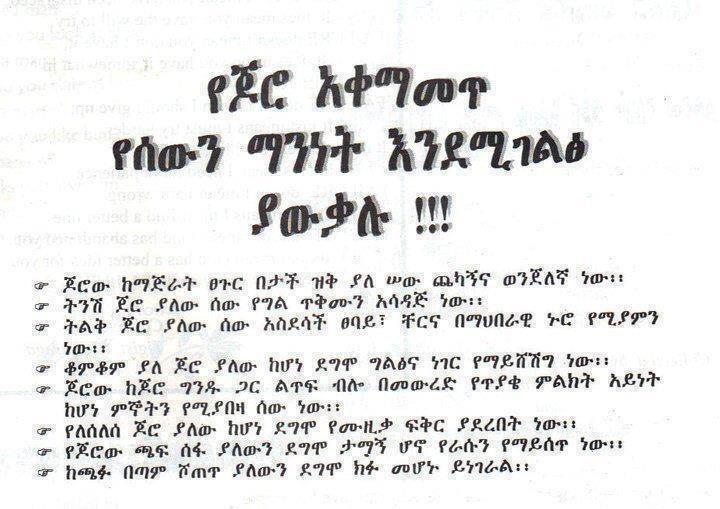 የጆሮ አቀማመጥ
የሰውን ማንነት እንደሚገልፅ
ያውቃሉ !!!
☞ ጆሮው ከማጅራት ፀጉር በታች ዝቅ ያለ ሠው ጨካኝና ወንጀለኛ ነው፡፡
☞ ትንሽ ጀሮ ያለው ሰው የግል ጥቅሙን አሳዳጅ ነው፡፡
☞ ትልቅ ጆሮ ያለው ሰው አስደሳች ፀባይ፣ ቸርና በማህበራዊ ኑሮ የሚያምን
ነው፡፡
☞ ቆምቆም ያለ ጆሮ ያለው ከሆነ ደግሞ ግልፅና ነገር የማይሸሽግ ነው፡፡
☞ ጆሮው ከጆሮ ግንዱ ጋር ልጥፍ ብሎ በመውረድ የጥያቄ ምልክት አይነት
ከሆነ ምኞትን የሚያበዛ ሰው ነው፡፡
☞ የለሰለሰ ጆሮ ያለው ከሆነ ደግሞ የሙዚቃ ፍቅር ያደረበት ነው፡፡
☞ የጆሮው ጫፍ ሰፋ ያለውን ደግሞ ታማኝ ሆኖ የራሱን የማይሰጥ ነው፡፡
☞ ከጫፉ በጣም ሾጠጥ ያለውን ደግሞ ክፉ መሆኑ ይነገራል፡፡